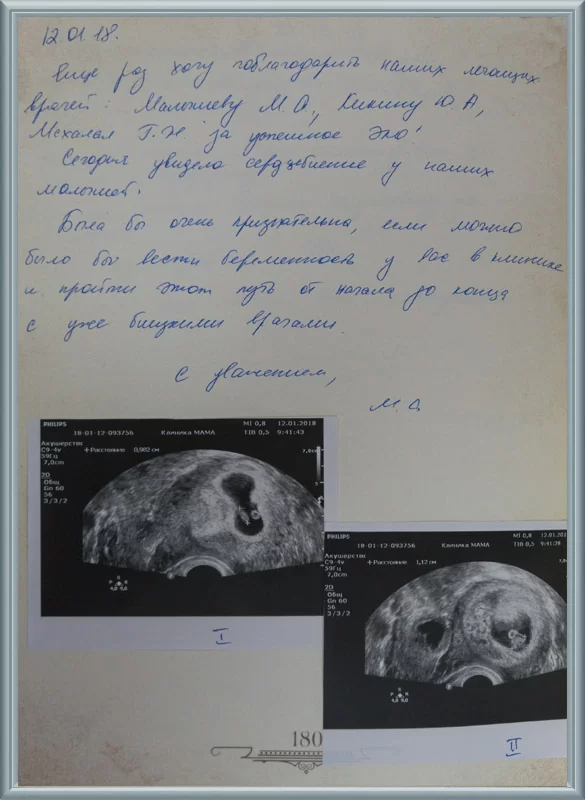 12.01.18.
Еще раз хочу поблагодарить наших
врачей: Малышеву М.А., Кикину Ю.А.,
Мехалая Г.Н. за успешное Эко!
Сегодня увидела сердцебиение у наших
малышей.
Была бы очень признательна, если можно
было бы вести беременность у вас в клинике
и пройти этот путь от начала до конца
с уже близкими врагами.
С уважением,
М.А
PHILIPS
MI 0,8 12.01.2018
18-01-12-093756 Клиника МАМА TIB 0,5 9:41:43
Акушерство
C9-4v +Расстояние 0,982 см
59Гц
7,0cm
2D
Общ
Gn 60
56
3/3/2
I
PHILIPS
MI 0,8 12.01.201
18-01-12-093756 Клиника МАМА TIB 0,5 9:41:28
Акушерство
C9-4v +Расстояние 1,12 см
59Гц
7,0cm
2D
Общ
Gn 60
56
3/3/2
II
180